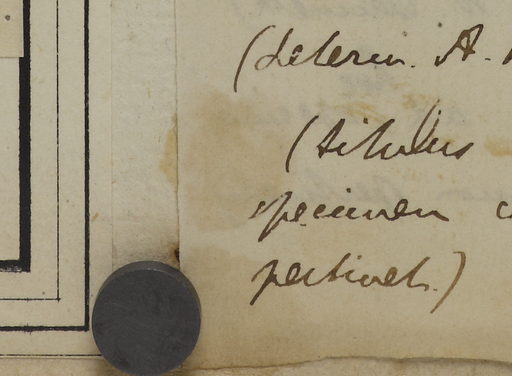 (determ. A.
(titulus
specimen
pertinet.)